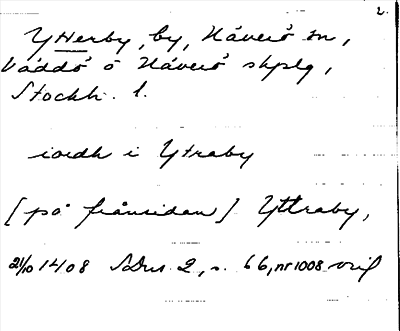 2.
Ytterby, by, Häverö sn,
Väddö o Häverö skplg,
Stockh. l.
iordh i Ytraby
[på frånsidan] Yttraby,
21/10 1408 SDns. 2, s. 66, nr 1008 orig